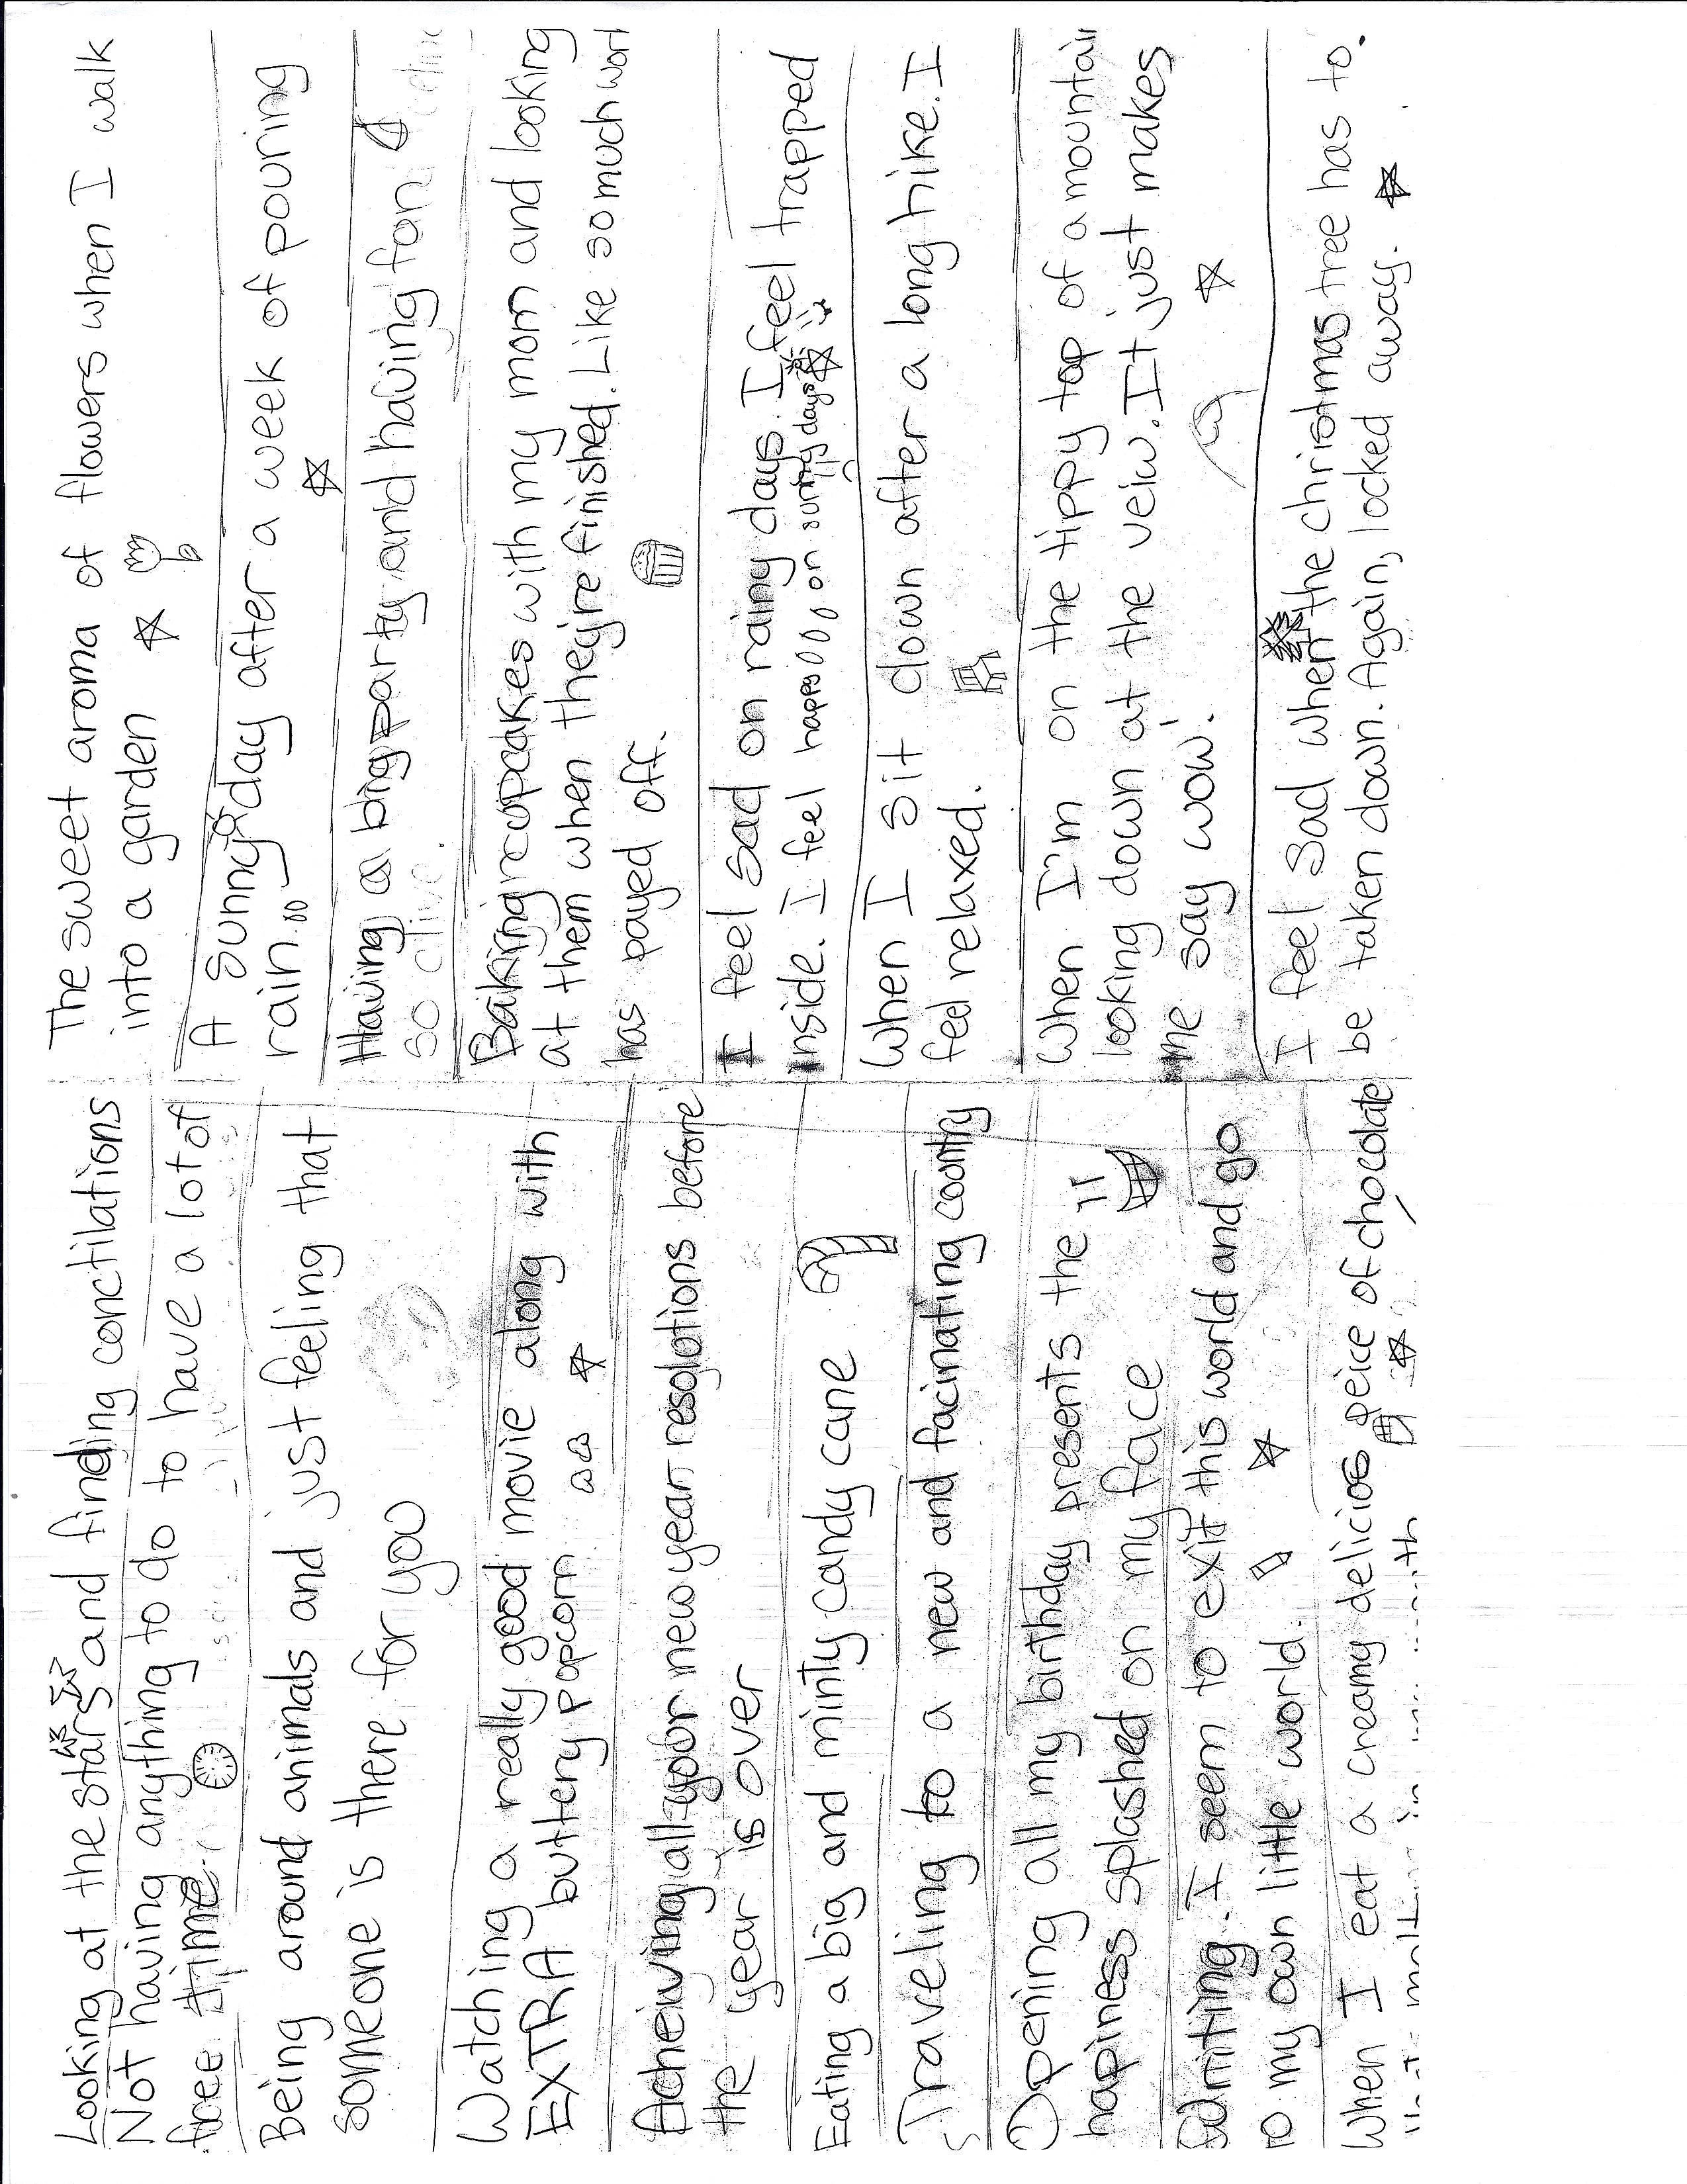 Looking at the stars and finding conctilations
Not having anything to do to have a lot of
free time
Being around animals and just feeling that
someone is there for you
Watching a really good movie along with
EXTRA buttery popcorn
Acheiving all your new year resolotions before
the year is over
Eating a big and minty candy cane
Traveling to a new and facinating country
Opening all my birthday presents the
happiness splashed on my face
Writing. I seem to exit this world and go
to my own little world.
When I eat a creamy delicios peice of chocolate
melting in my mouth
The sweet aroma of flowers when I walk
into a garden
A sunny day after a week of pouring
rain
Having a big party and having fun
so alive.
Baking cupcakes with my mom and looking
at them when they're finished. Like so much work
has payed off.
I feel sad on rainy days. I feel trapped
inside. I feel happy on sunny days
When I sit down after a long hike. I
feel relaxed.
When I'm on the tippy top of a mountain
looking down at the veiw. It just makes
me say 'wow'.
I feel sad when the christmas tree has to
be taken down. Again, locked away.